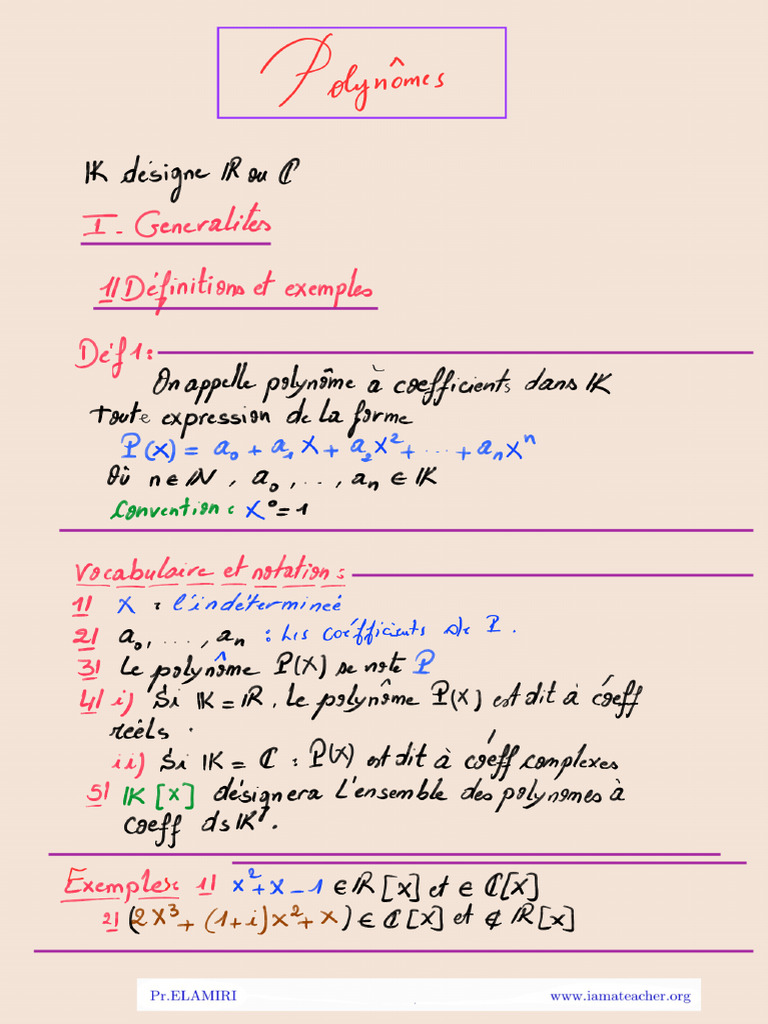 Polynômes
𝕂 désigne ℝ ou ℂ
I- Generalités
1/ Définitions et exemples
Déf 1:
On appelle polynôme à coefficients dans 𝕂
toute expression de la forme
P(X) = a₀ + a₁X + a₂X² + ... + aₙXⁿ
Où n ∈ ℕ, a₀, ..., aₙ ∈ 𝕂
Convention: X⁰ = 1
Vocabulaire et notation:
1/ X : l'indétermineé
2/ a₀, ..., aₙ : Les coéfficients de P.
3/ Le polynôme P(X) se note P
4/ i) Si 𝕂 = ℝ, le polynôme P(X) est dit à coéff
réels.
ii) Si 𝕂 = ℂ : P(X) est dit à coéff complexes
5/ 𝕂[X] désignera l'ensemble des polynomes à
coeff ds 𝕂.
Exemples: 1/ X² + X - 1 ∈ ℝ[X] et ∈ ℂ[X]
2/ (2X³ + (1+i)X² + X) ∈ ℂ[X] et ∉ ℝ[X]
Pr.ELAMIRI www.iamateacher.org